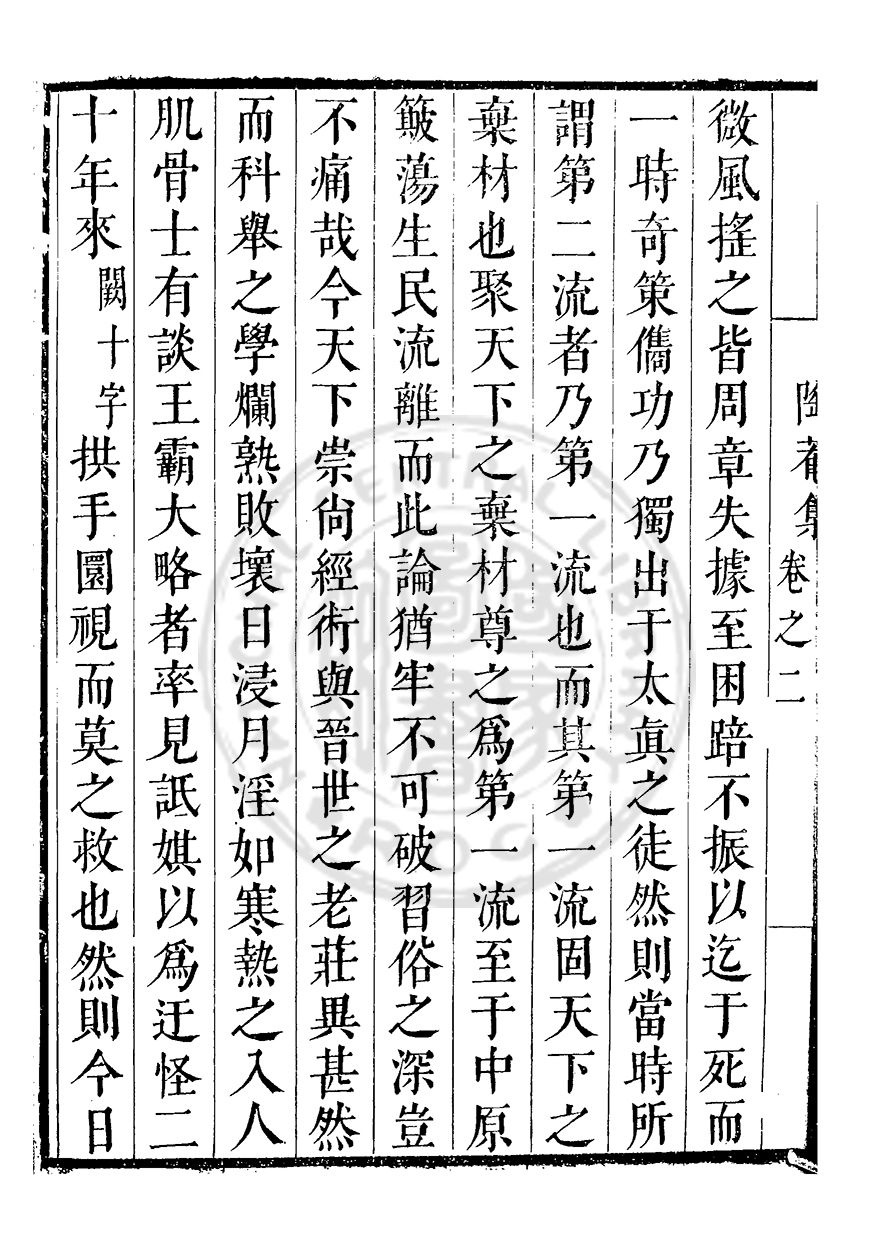 陶菴集 卷之二
微風搖之皆周章失據至困踣不振以迄于死而
一時奇策儁功乃獨出于太眞之徒然則當時所
謂第二流者乃第一流也而其第一流固天下之
棄材也聚天下之棄材尊之爲第一流至于中原
簸蕩生民流離而此論猶牢不可破習俗之深豈
不痛哉今天下崇尙經術與晉世之老莊異甚然
而科舉之學爛熟敗壞日浸月淫如寒熱之入人
肌骨士有談王霸大略者率見詆娸以爲迂怪二
十年來闕十字拱手圜視而莫之救也然則今日